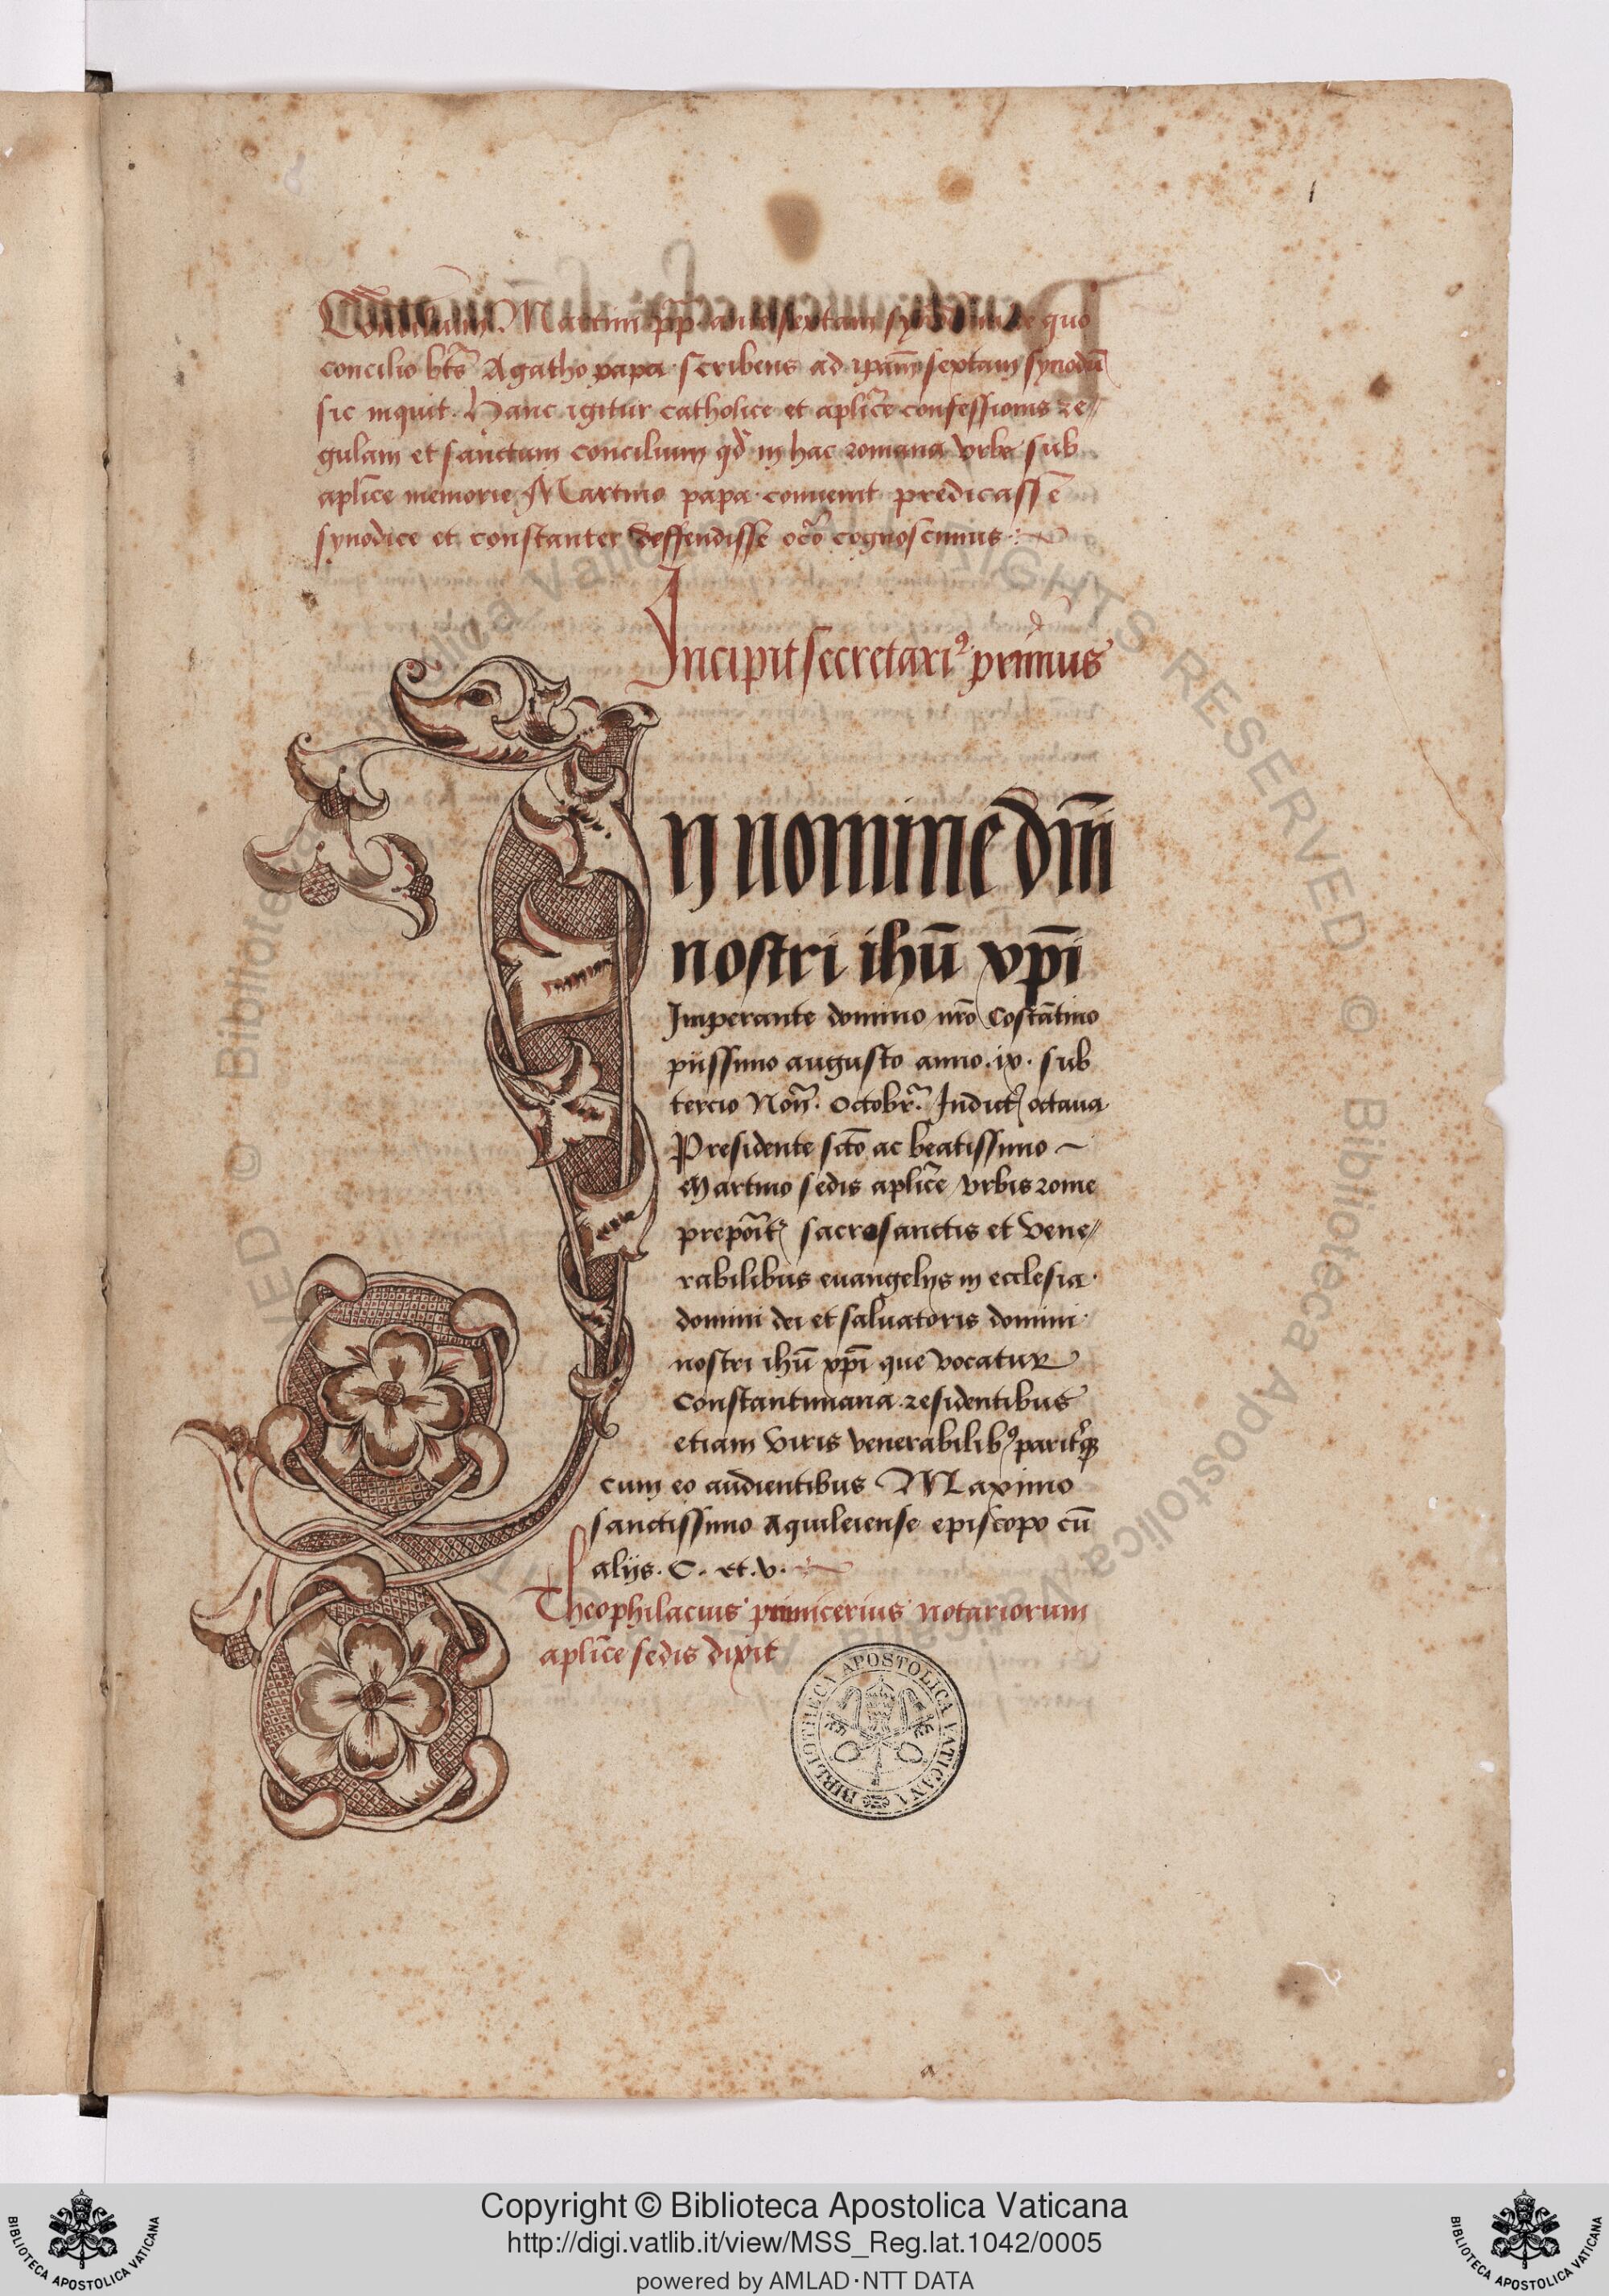 1
Concilium Martini pp̄ ante sextam synodum de quo
concilio bt̄s Agatho papa scribens ad ip̄am sextam synodū
sic inquit. Hanc igitur catholice et apl̄ice confessionis re⸗
gulam et sanctum concilium qd̄ in hac romana vrbe sub
apl̄ice memorie Martino papa conuenit predicasse
synodice et constanter deffendisse
cognoscimus
Incipit secretariꝰ primus
In nomine dn̄i
nostri ihū xp̄i
Imperante domino nr̄o Costātino
piissimo augusto anno .ix. sub
tercio Non̄. Octobr̄. Indict̄ octaua
Presidente sct̄o ac beatissimo ~
Martino sedis apl̄ice vrbis rome
prepoīt̄ sacrosanctis et vene⸗
rabilibus euangelijs in ecclesia
domini dei et saluatoris domini
nostri ihū xp̄i que vocatur
Constantiniana residentibus
etiam viris venerabilibꝰ paritꝗꝫ
cum eo audientibus Maximo
sanctissimo Aquileiense episcopo cū
alijs. C. et. v.
Theophilacius primicerius notariorum
apl̄ice sedis dixit
BIBLIOTHECA APOSTOLICA VATICANA
a
Copyright © Biblioteca Apostolica Vaticana
http://digi.vatlib.it/view/MSS_Reg.lat.1042/0005
powered by AMLAD·NTT DATA
BIBLIOTECA APOSTOLICA VATICANA
BIBLIOTECA APOSTOLICA VATICANA